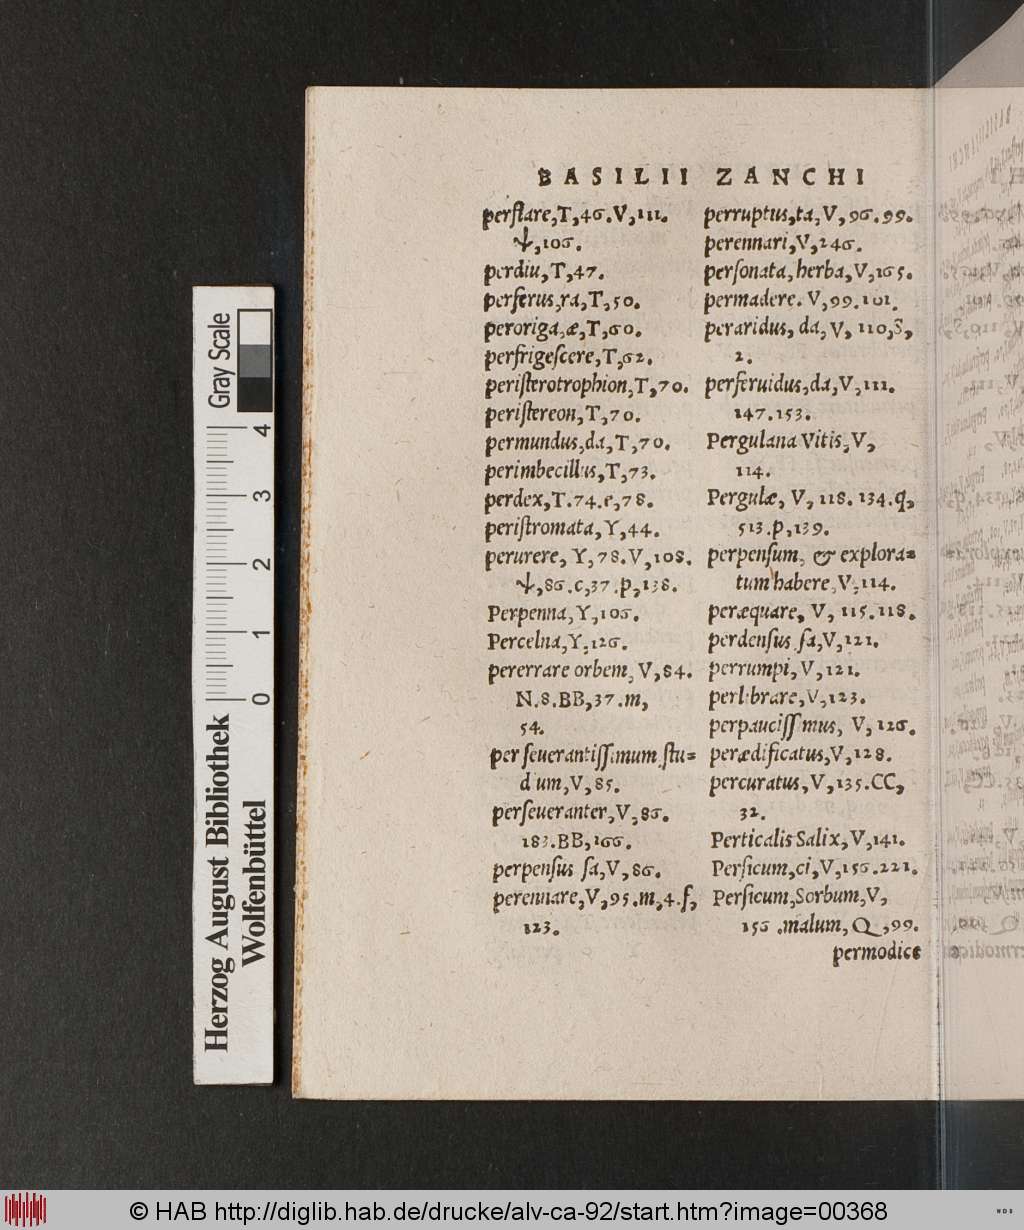 BASILII ZANCHI
perſtare,T,46.V,111.
Ψ,106.
perdiu,T,47.
perferus,ra,T,50.
peroriga,æ,T,60.
perfrigeſcere,T,62.
periſterotrophion,T,70.
periſtereon,T,70.
permundus,da,T,70.
perimbecillus,T,73.
perdex,T.74.e,78.
periſtromata,Y,44.
perurere, Y,78.V,108.
Ψ,86.c,37.p,138.
Perpenna,Y,106.
Percelna,Y,126.
pererrare orbem, V,84.
N.8.BB,37.m,
54.
perſeuerantiſſimum ſtu=
dium,V,85.
perſeueranter,V,86.
183.BB,166.
perpenſus ſa,V,86.
perennare,V,95.m,4.f,
123.
perruptus,ta,V,96.99.
perennari,V,246.
perſonata,herba,V,165.
permadere. V,99.101.
peraridus, da,V, 110,S,
2.
perferuidus,da,V,111.
147.153.
Pergulana Vitis,V,
114.
Pergulæ, V, 118. 134.q,
513.p,139.
perpenſum, & explora=
tum habere,V,114.
peræquare, V, 115.118.
perdenſus ſa,V,121.
perrumpi,V,121.
perlibrare,V,123.
perpauciſſimus, V, 126.
perædificatus,V,128.
percuratus,V,135.CC,
32.
Perticalis Salix,V,141.
Perſicum,ci,V,156.221.
Perſicum,Sorbum,V,
156 .malum, Q ,99.
permodice
Gray Scale
4
3
2
1
0
Herzog August Bibliothek
Wolfenbüttel
© HAB http://diglib.hab.de/drucke/alv-ca-92/start.htm?image=00368